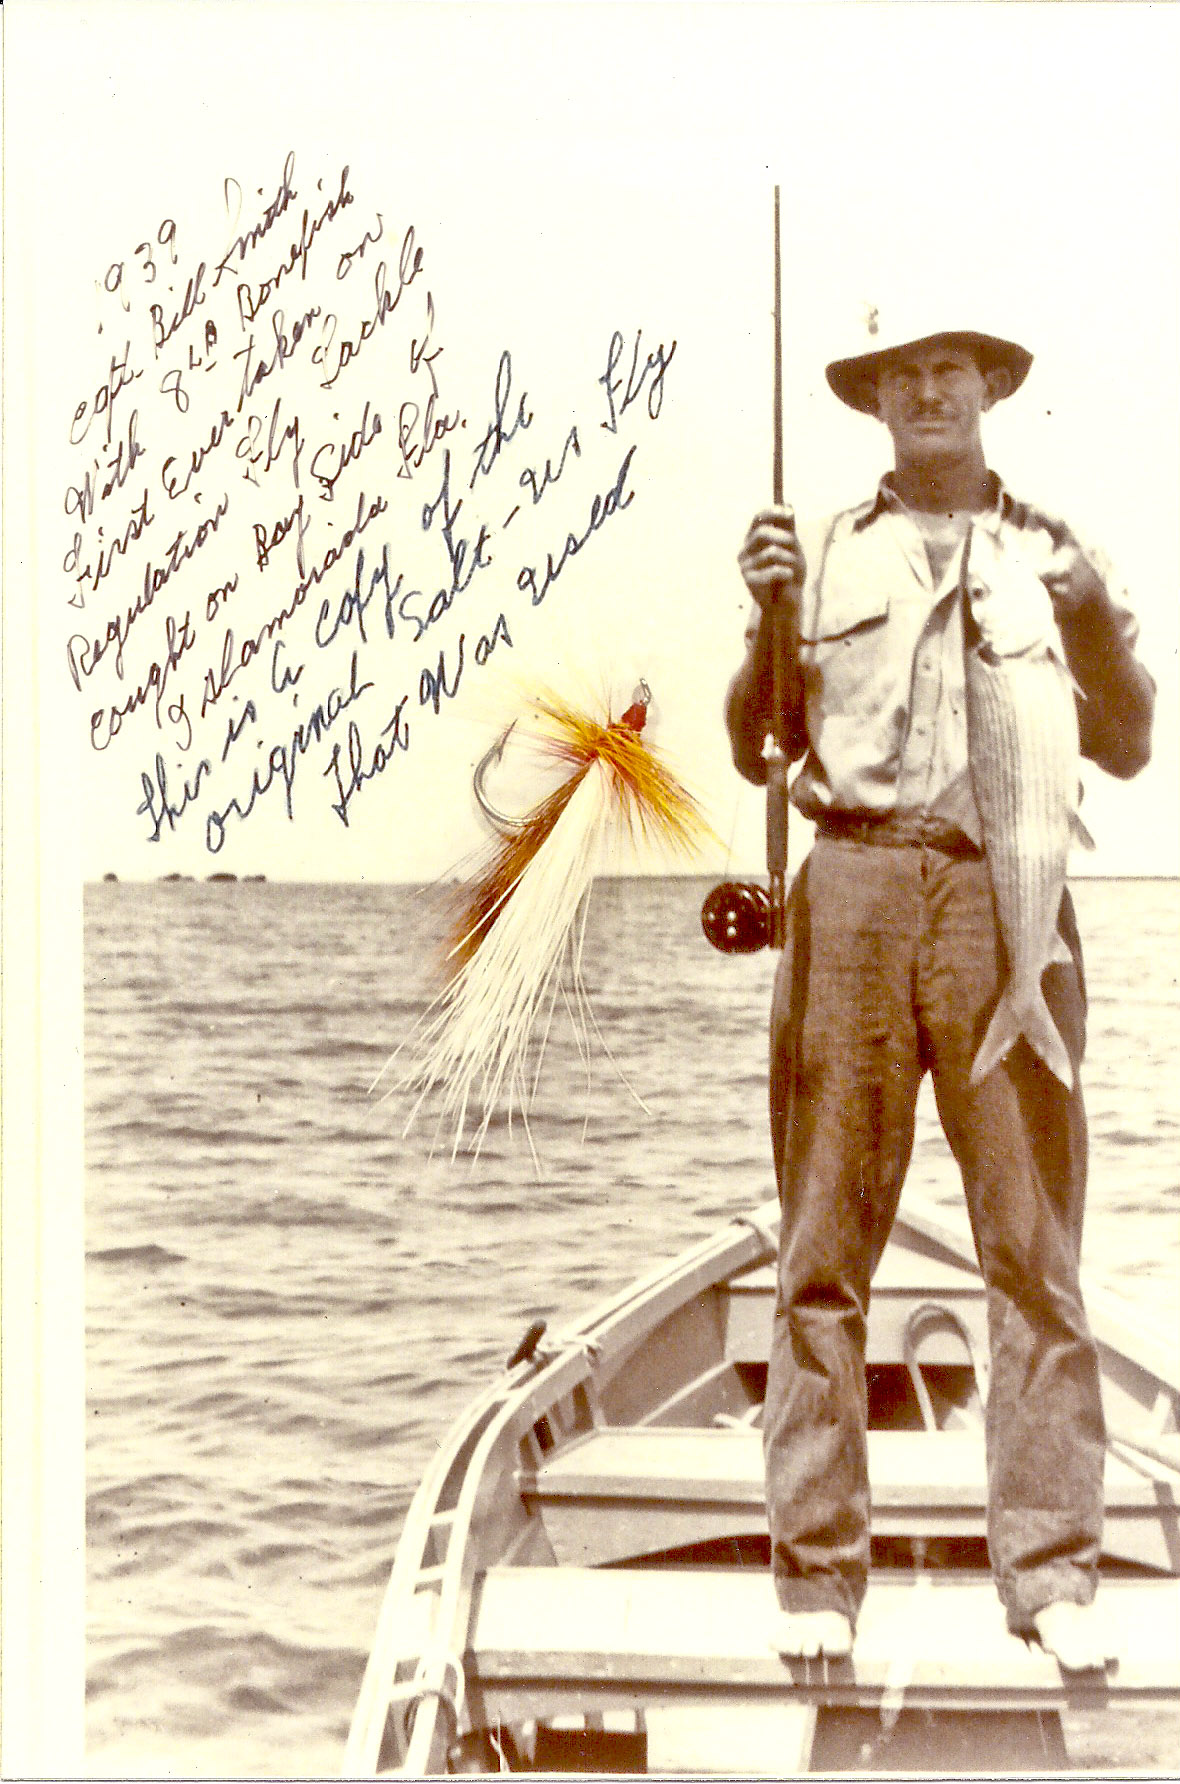 1939
Capt. Bill Smith
With 8 LB Bonefish
First Ever taken on
Regulation Fly Tackle
caught on Bay Side of
Islamorada Fla.
This is a copy of the
original Salt-us Fly
that was used